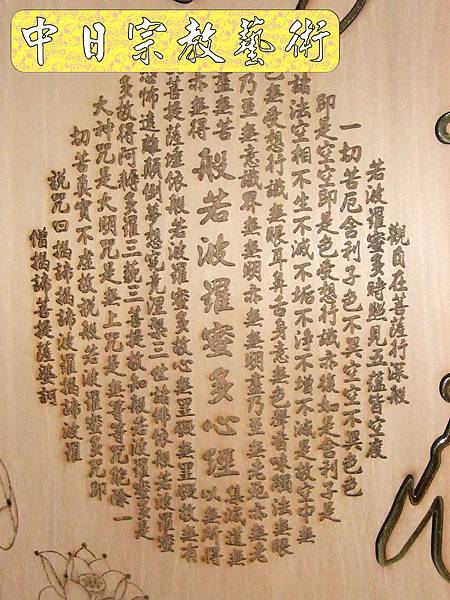 中日宗教藝術
觀自在菩薩行深般
若波羅蜜多時照見五蘊皆空度
一切苦厄舍利子色不異空空不異色色
即是空空即是色受想行識亦復如是舍利子是
諸法空相不生不滅不垢不淨不增不減是故空中無
色無受想行識無眼耳鼻舌身意無色聲香味觸法無眼
乃至無意識界無無明亦無無明盡乃至無老死亦無老
盡無苦
集滅道無
亦無得
以無所得
般若波羅蜜多心經
菩提薩埵依般若波羅蜜多故心無罣礙無罣礙故無有
恐怖遠離顛倒夢想究竟涅槃三世諸佛依般若波羅蜜
多故得阿耨多羅三藐三菩提故知般若波羅蜜多是
大神咒是大明咒是無上咒是無等等咒能除一
切苦真實不虛故說般若波羅蜜多咒即
說咒曰揭諦揭諦波羅揭諦波羅
僧揭諦菩提薩婆訶